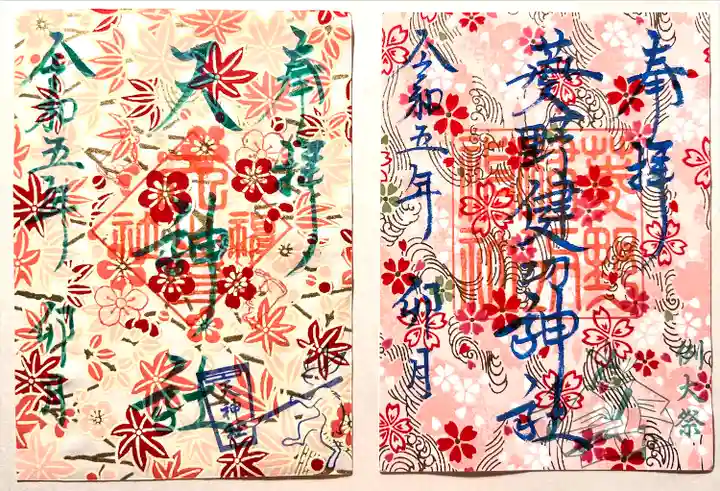 奉拝
例大祭
菱野健功神社
令和五年 卯月
奉拝
天神社
天神社
令和五年 卯月